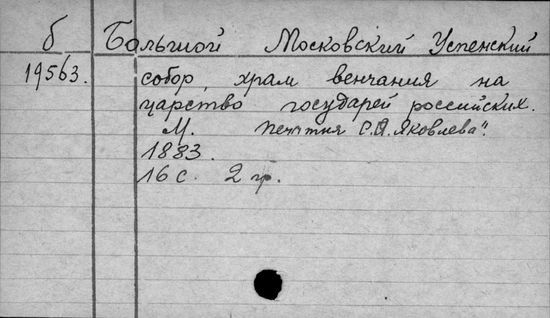 б Большой Московский Успенский
19563. собор, храм венчания на
царство государей российских.
М. С.П. Яковлева".
1883.
16 с. 2 гр.